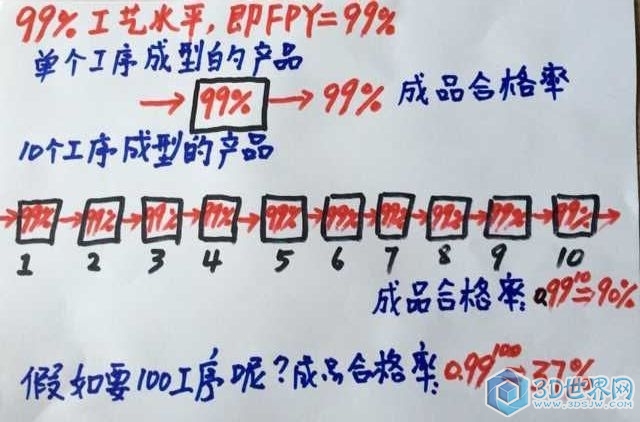 99%工艺水平,即FPY=99%
单个工序成型的产品
99% 99% 成品合格率
10个工序成型的产品
99% 99% 99% 99% 99% 99% 99% 99% 99% 99%
1 2 3 4 5 6 7 8 9 10
成品合格率:0.99¹⁰=90%
假如要100工序呢?成品合格率:0.99¹⁰⁰=37%
3D世界网
WWW.3DSJW.COM